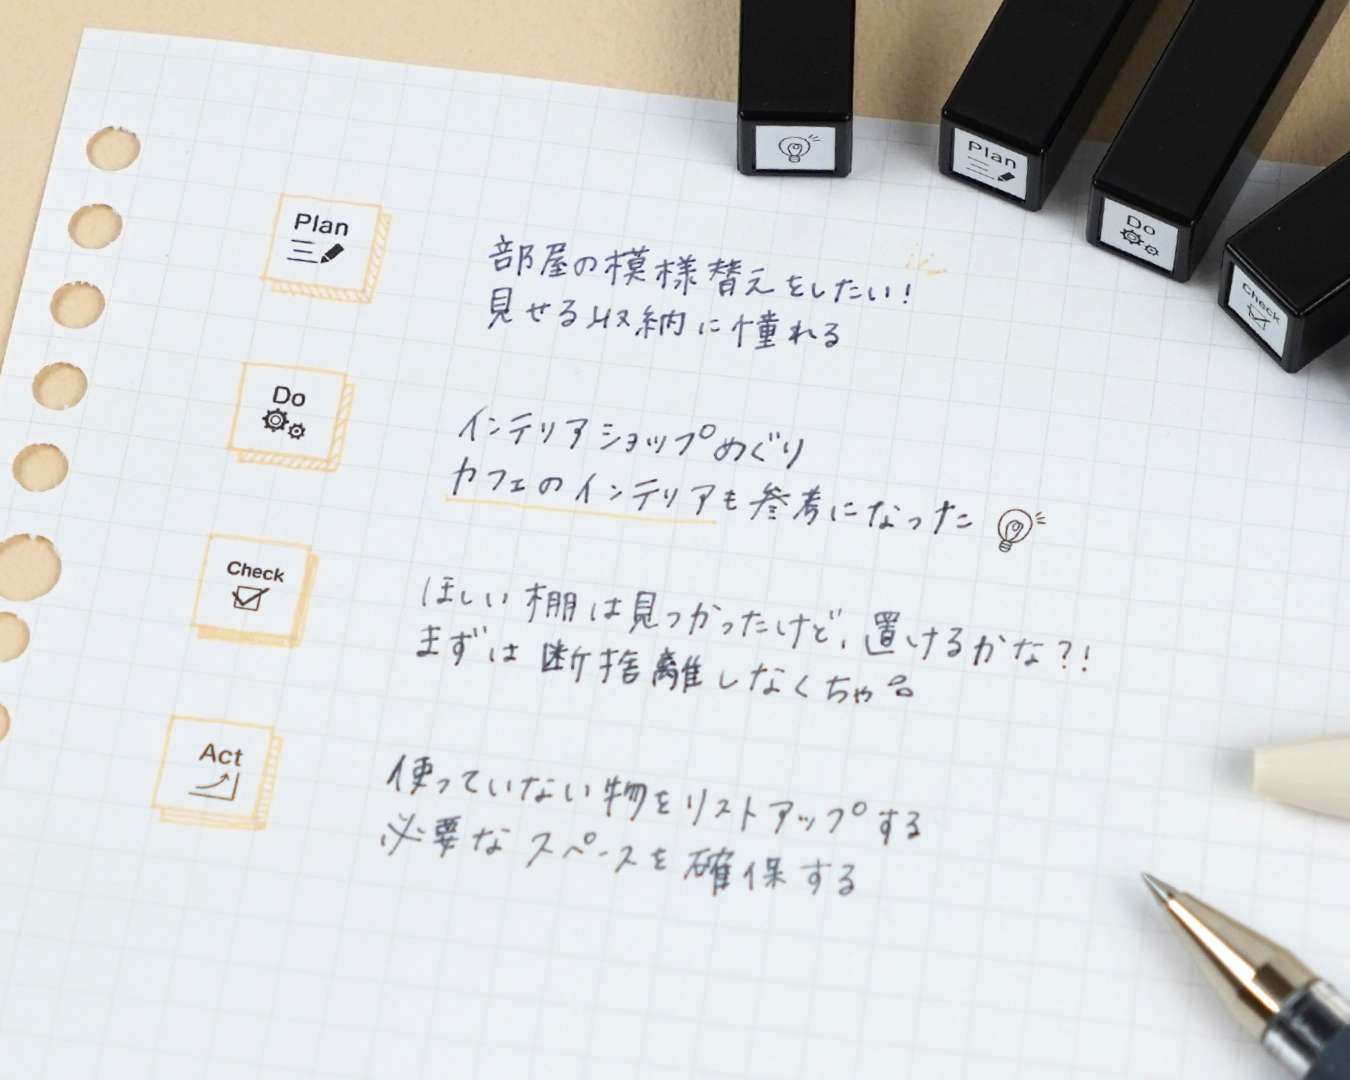 Plan
Do
Check
Plan
部屋の模様替えをしたい!
見せる収納に憧れる
Do
インテリアショップめぐり
カフェのインテリアも参考になった
Check
ほしい棚は見つかったけど、置けるかな?!
まずは断捨離しなくちゃ
Act
使っていない物をリストアップする
必要なスペースを確保する